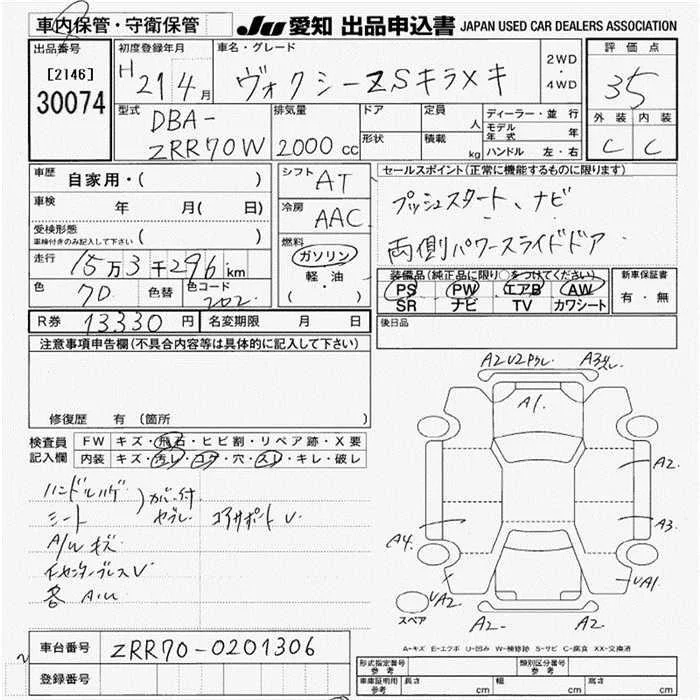 車内保管・守衛保管
JU 愛知 出品申込書 JAPAN USED CAR DEALERS ASSOCIATION
出品番号
[2146]
30074
初度登録年月
H 21 4月
車名・グレード
ヴォクシーZSキラメキ
2WD
・
4WD
評価点
3.5
外装 内装
C C
型式
DBA-
ZRR70W
排気量
2000 cc
ドア
形状
定員
人
積載
kg
ディーラー・並行
モデル年式 年
ハンドル 左・右
車歴 自家用・( )
車検 年 月( 日)
受検形態
車検付きのみ記入して下さい ( )
走行 15万3千296km
色 7D 色替 色コード 202
シフト AT
冷房 AAC
燃料
ガソリン
軽・油
( ・ )
セールスポイント(正常に機能するものに限ります)
プッシュスタート、ナビ
両側パワースライドドア
装備品(純正品に限り○をつけてください)
PS PW エアB AW
SR ナビ TV カワシート
新車保証書
有・無
R券 13,330円 名変期限 月 日
後日品
注意事項申告欄(不具合内容等は具体的に記入して下さい)
修復歴 有(箇所 )
検査員記入欄
FW キズ・飛石・ヒビ割・リペア跡・X要
内装 キズ・汚レ・コゲ・穴・スレ・キレ・破レ
ハンドルハゲ
シート
A/W キズ
コアサポート V
A1.
A2.
A3.
A4.
VA1.
VA2.
A2-
A2-
スペア
A-キズ E-エクボ U-凹み W-補修跡 S-サビ C-腐食 XX-交換済
車台番号 ZRR70-0201306
登録番号
形式指定番号 参考
類別区分番号 参考
車庫証明用 参考 長さ cm 幅 cm 高さ cm